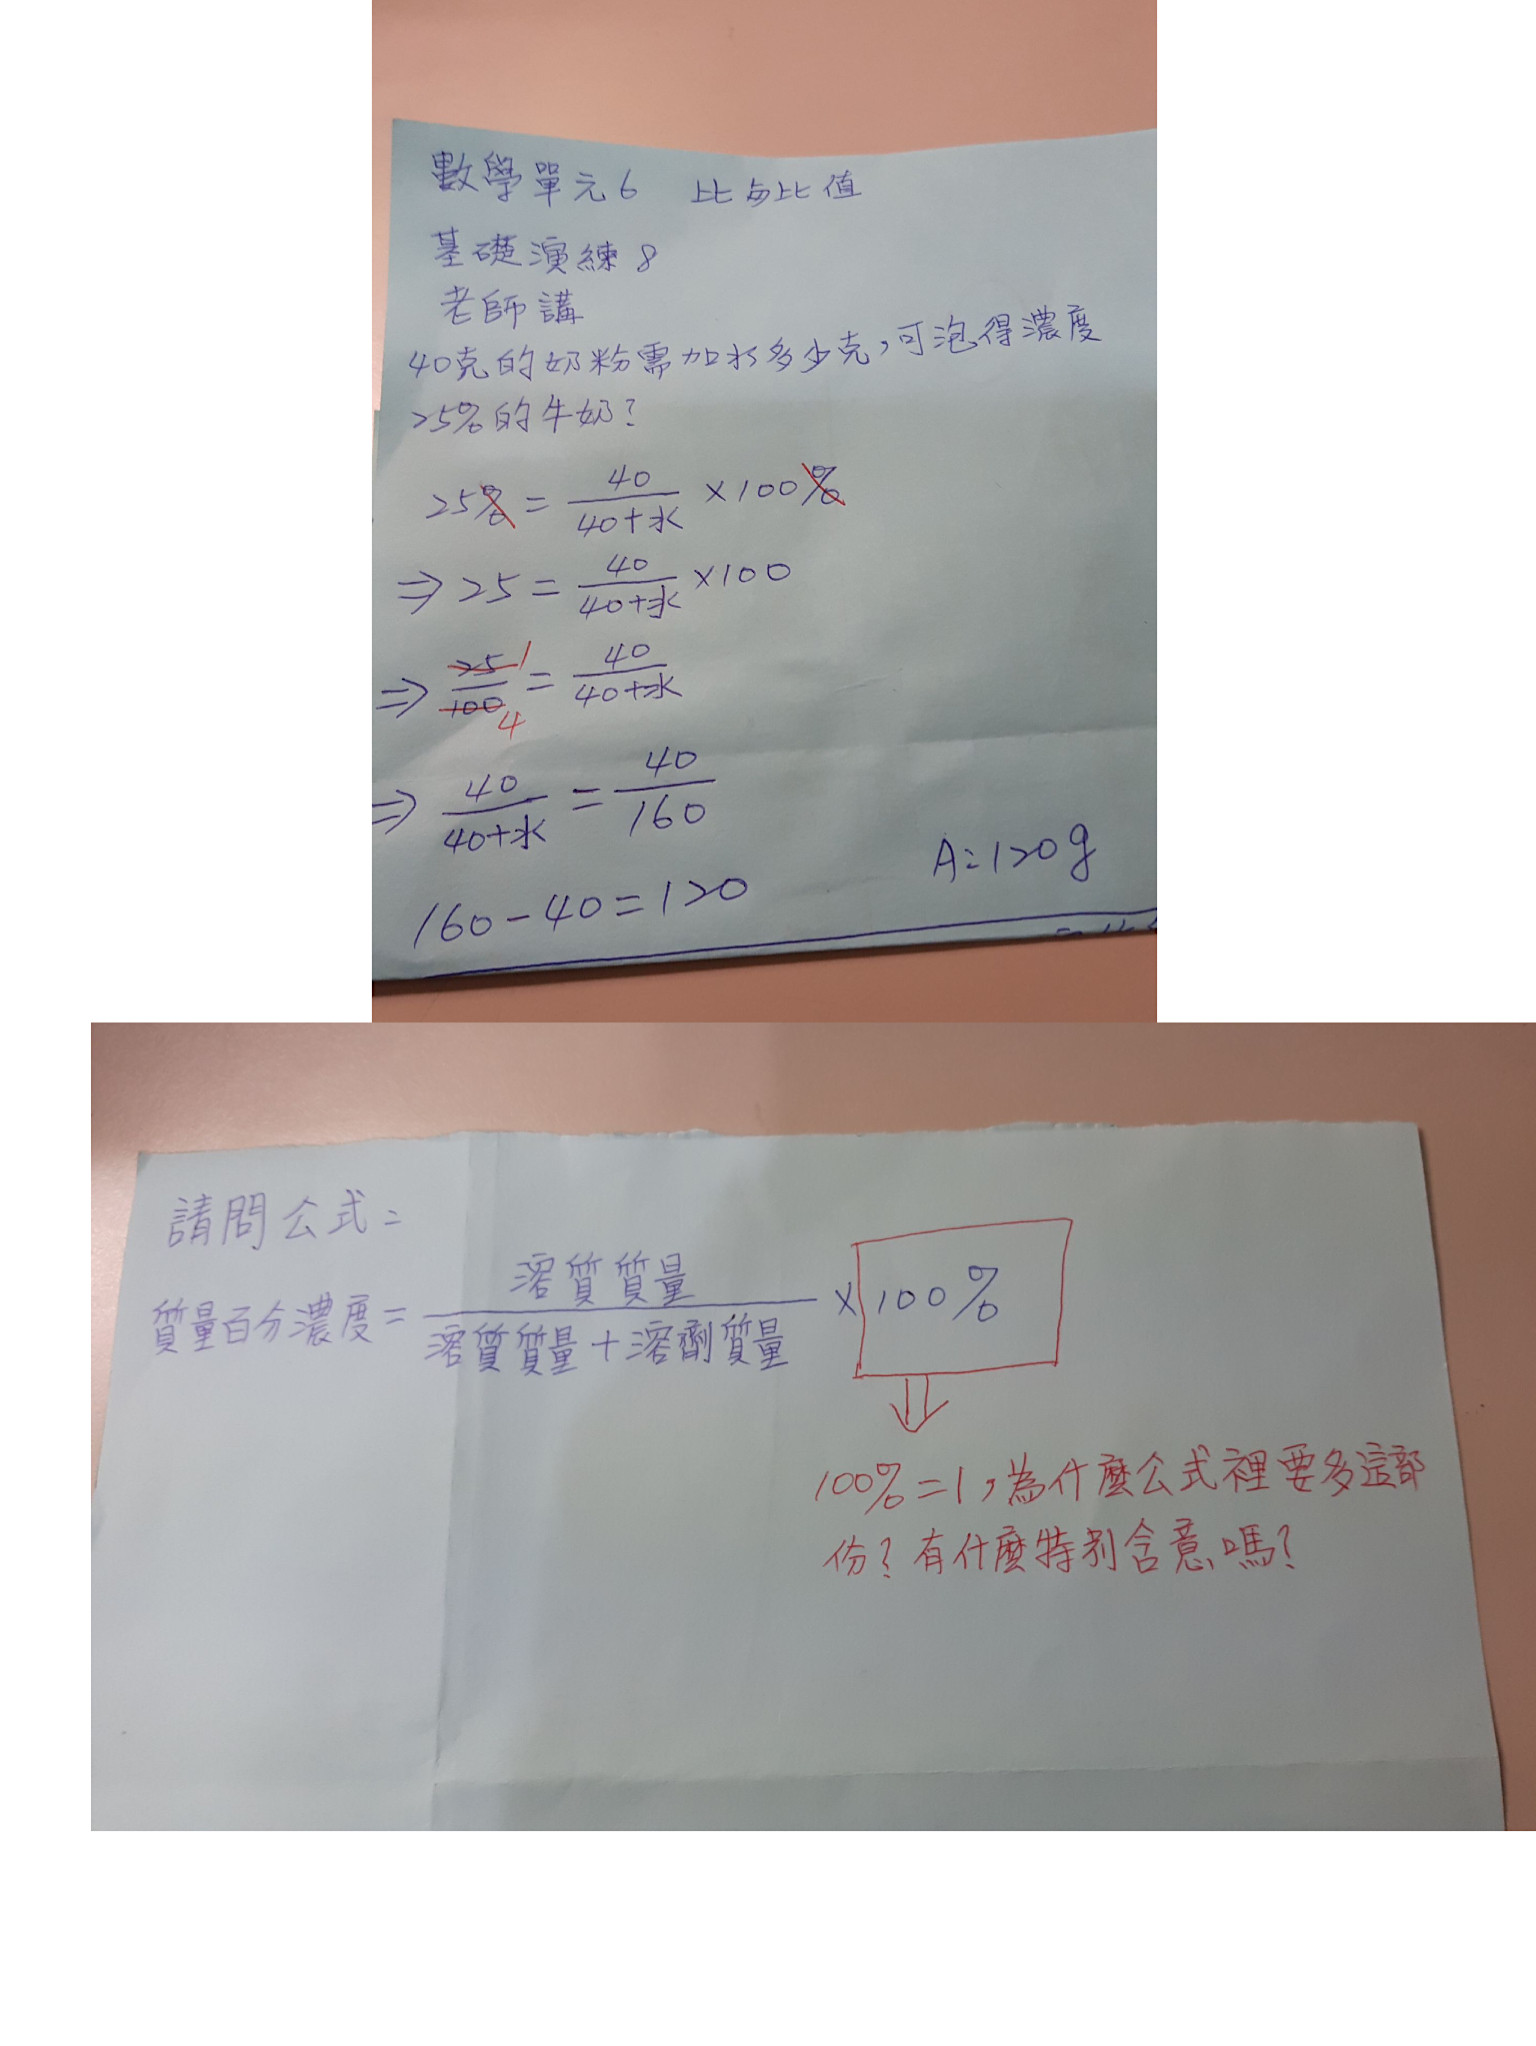 數學單元6 比與比值
基礎演練8
老師講
40克的奶粉需加水多少克,可泡得濃度
25%的牛奶?
25% = 40/(40+水) ×100%
⇒ 25 = 40/(40+水) ×100
⇒ 25/100 1/4 = 40/(40+水)
⇒ 40/(40+水) = 40/160
160-40=120
A:120g
請問公式=
質量百分濃度= 溶質質量/(溶質質量+溶劑質量) ×100%
100%=1,為什麼公式裡要多這部
份?有什麼特別含意嗎?